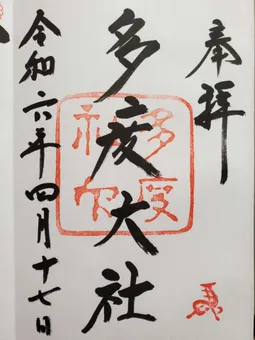 奉拝
多度大社
多度
令和六年四月十七日